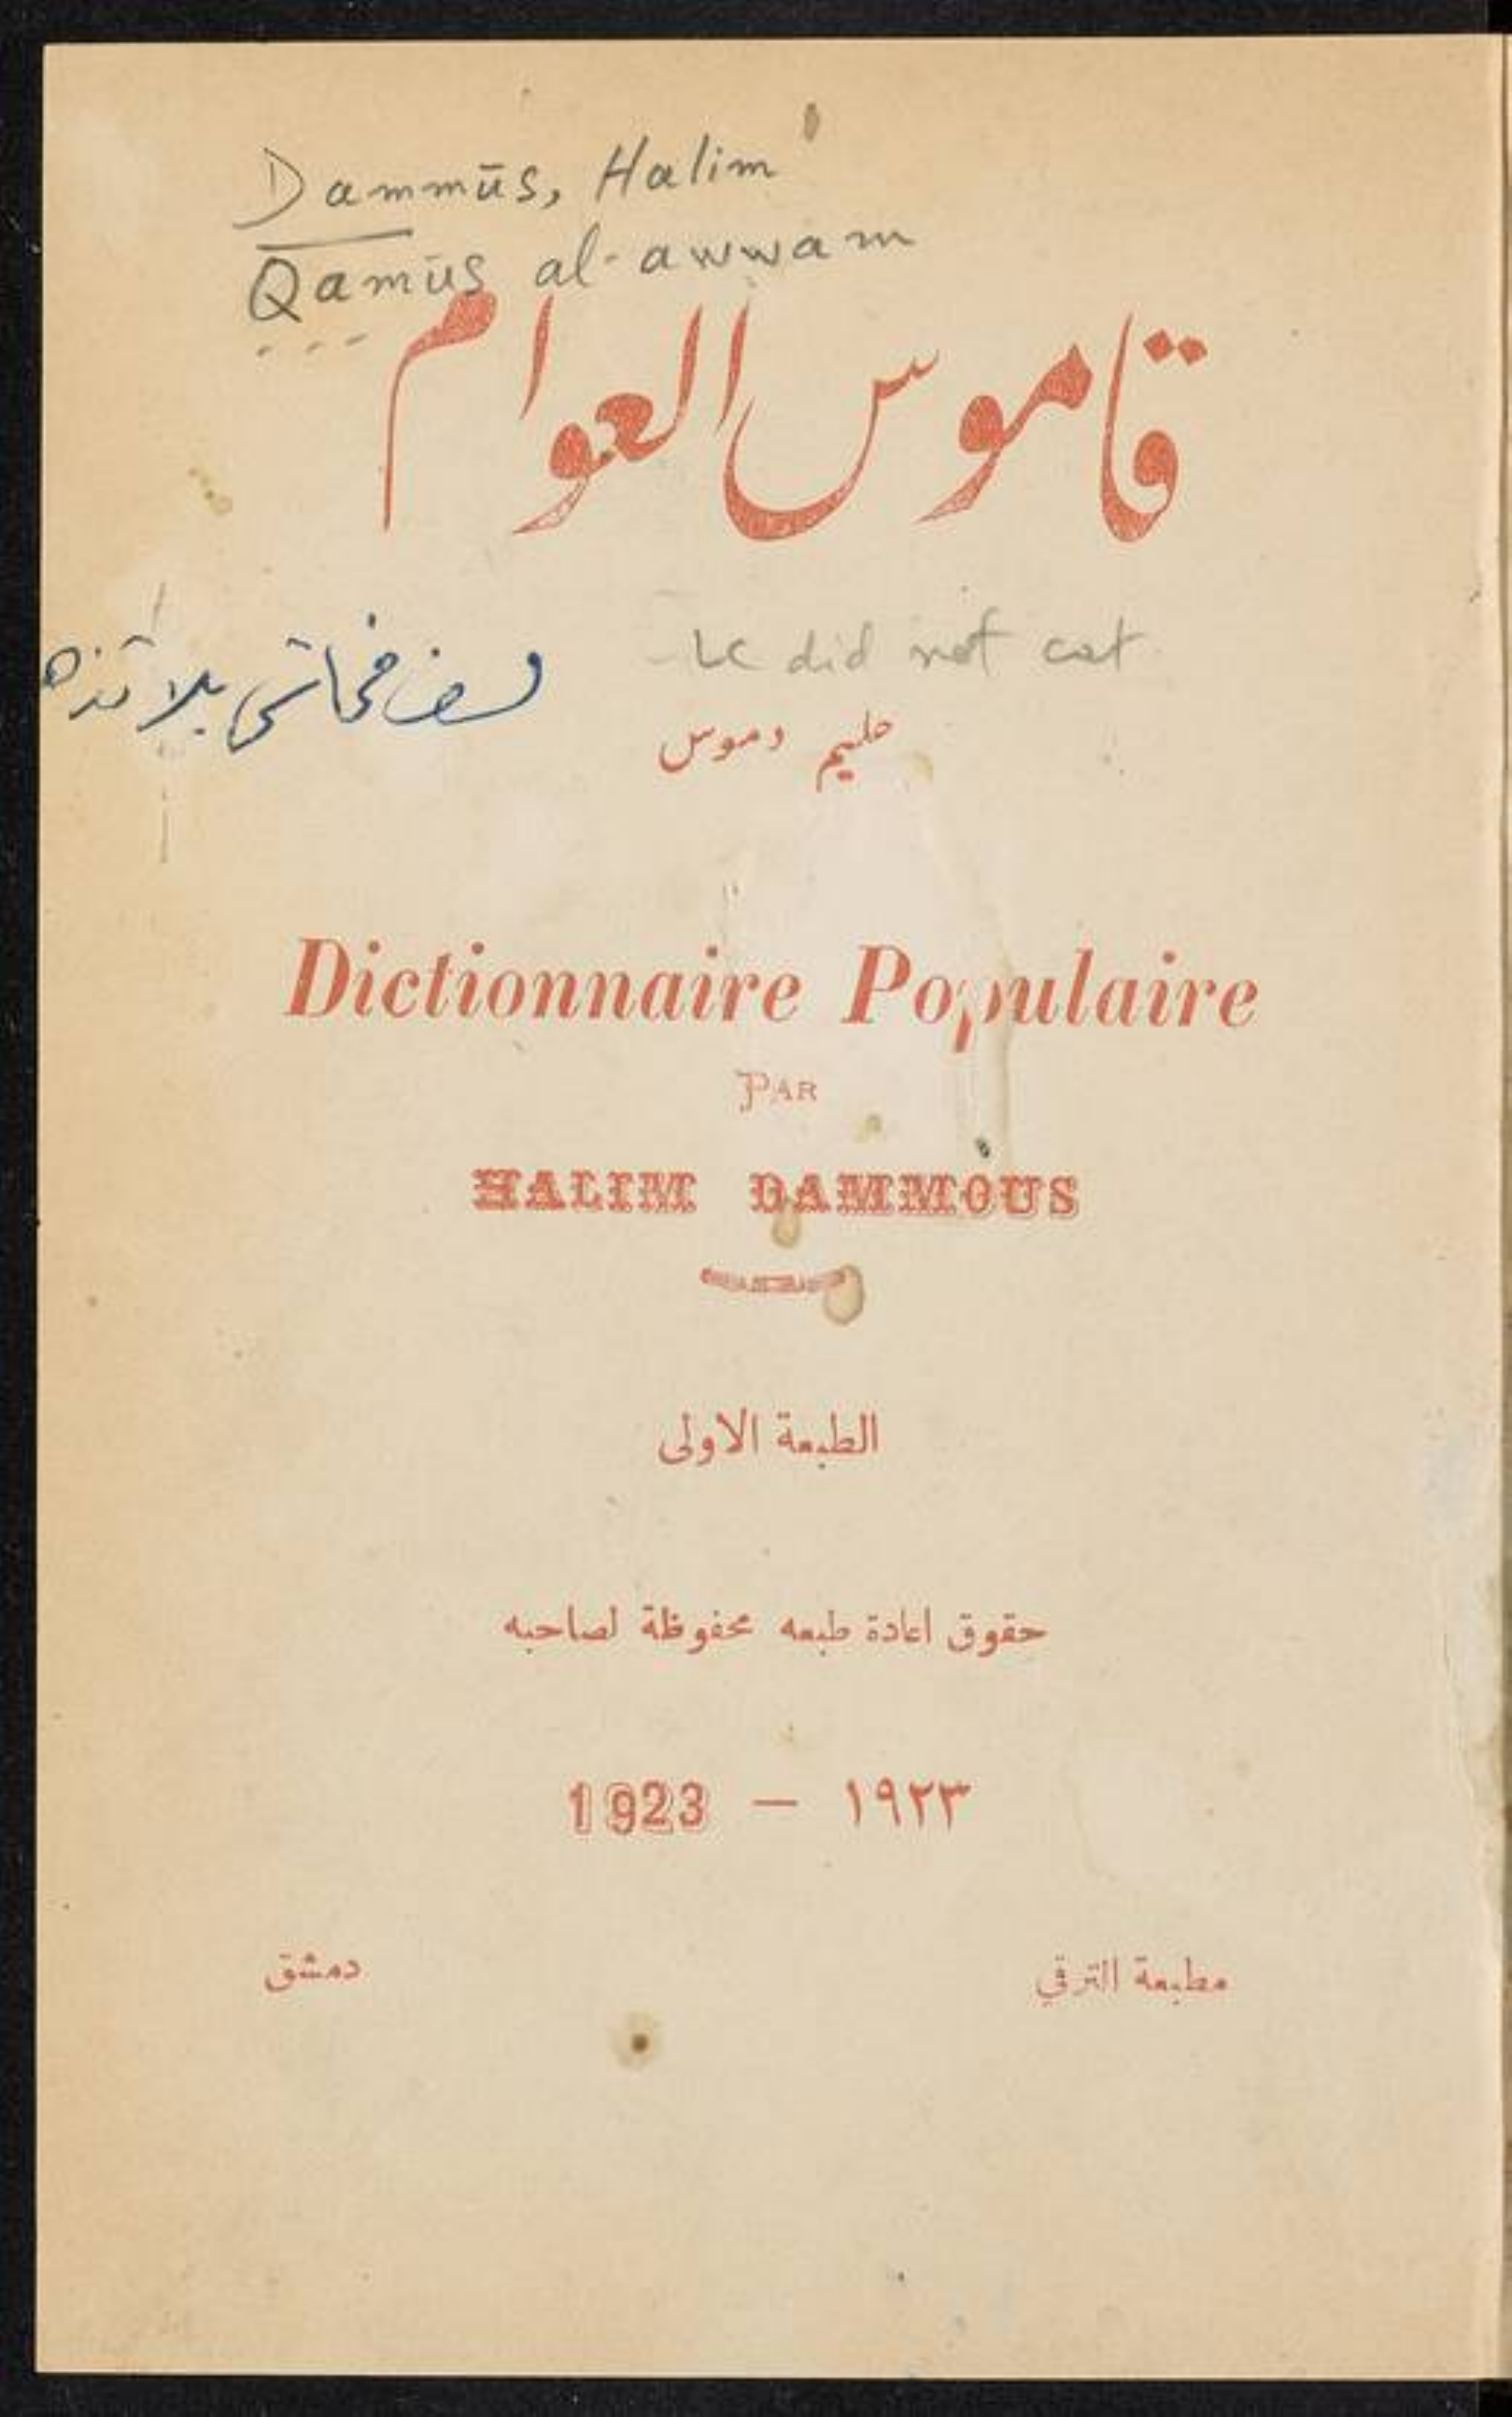 Dammūs, Halim
Qamūs al-awwam
قاموس العوام
LC did not cat
حليم دموس
Dictionnaire Populaire
PAR
HALIM DAMMOUS
الطبعة الاولى
حقوق اعادة طبعه محفوظة لصاحبه
1923 — ١٩٢٣
مطبعة الترقي دمشق